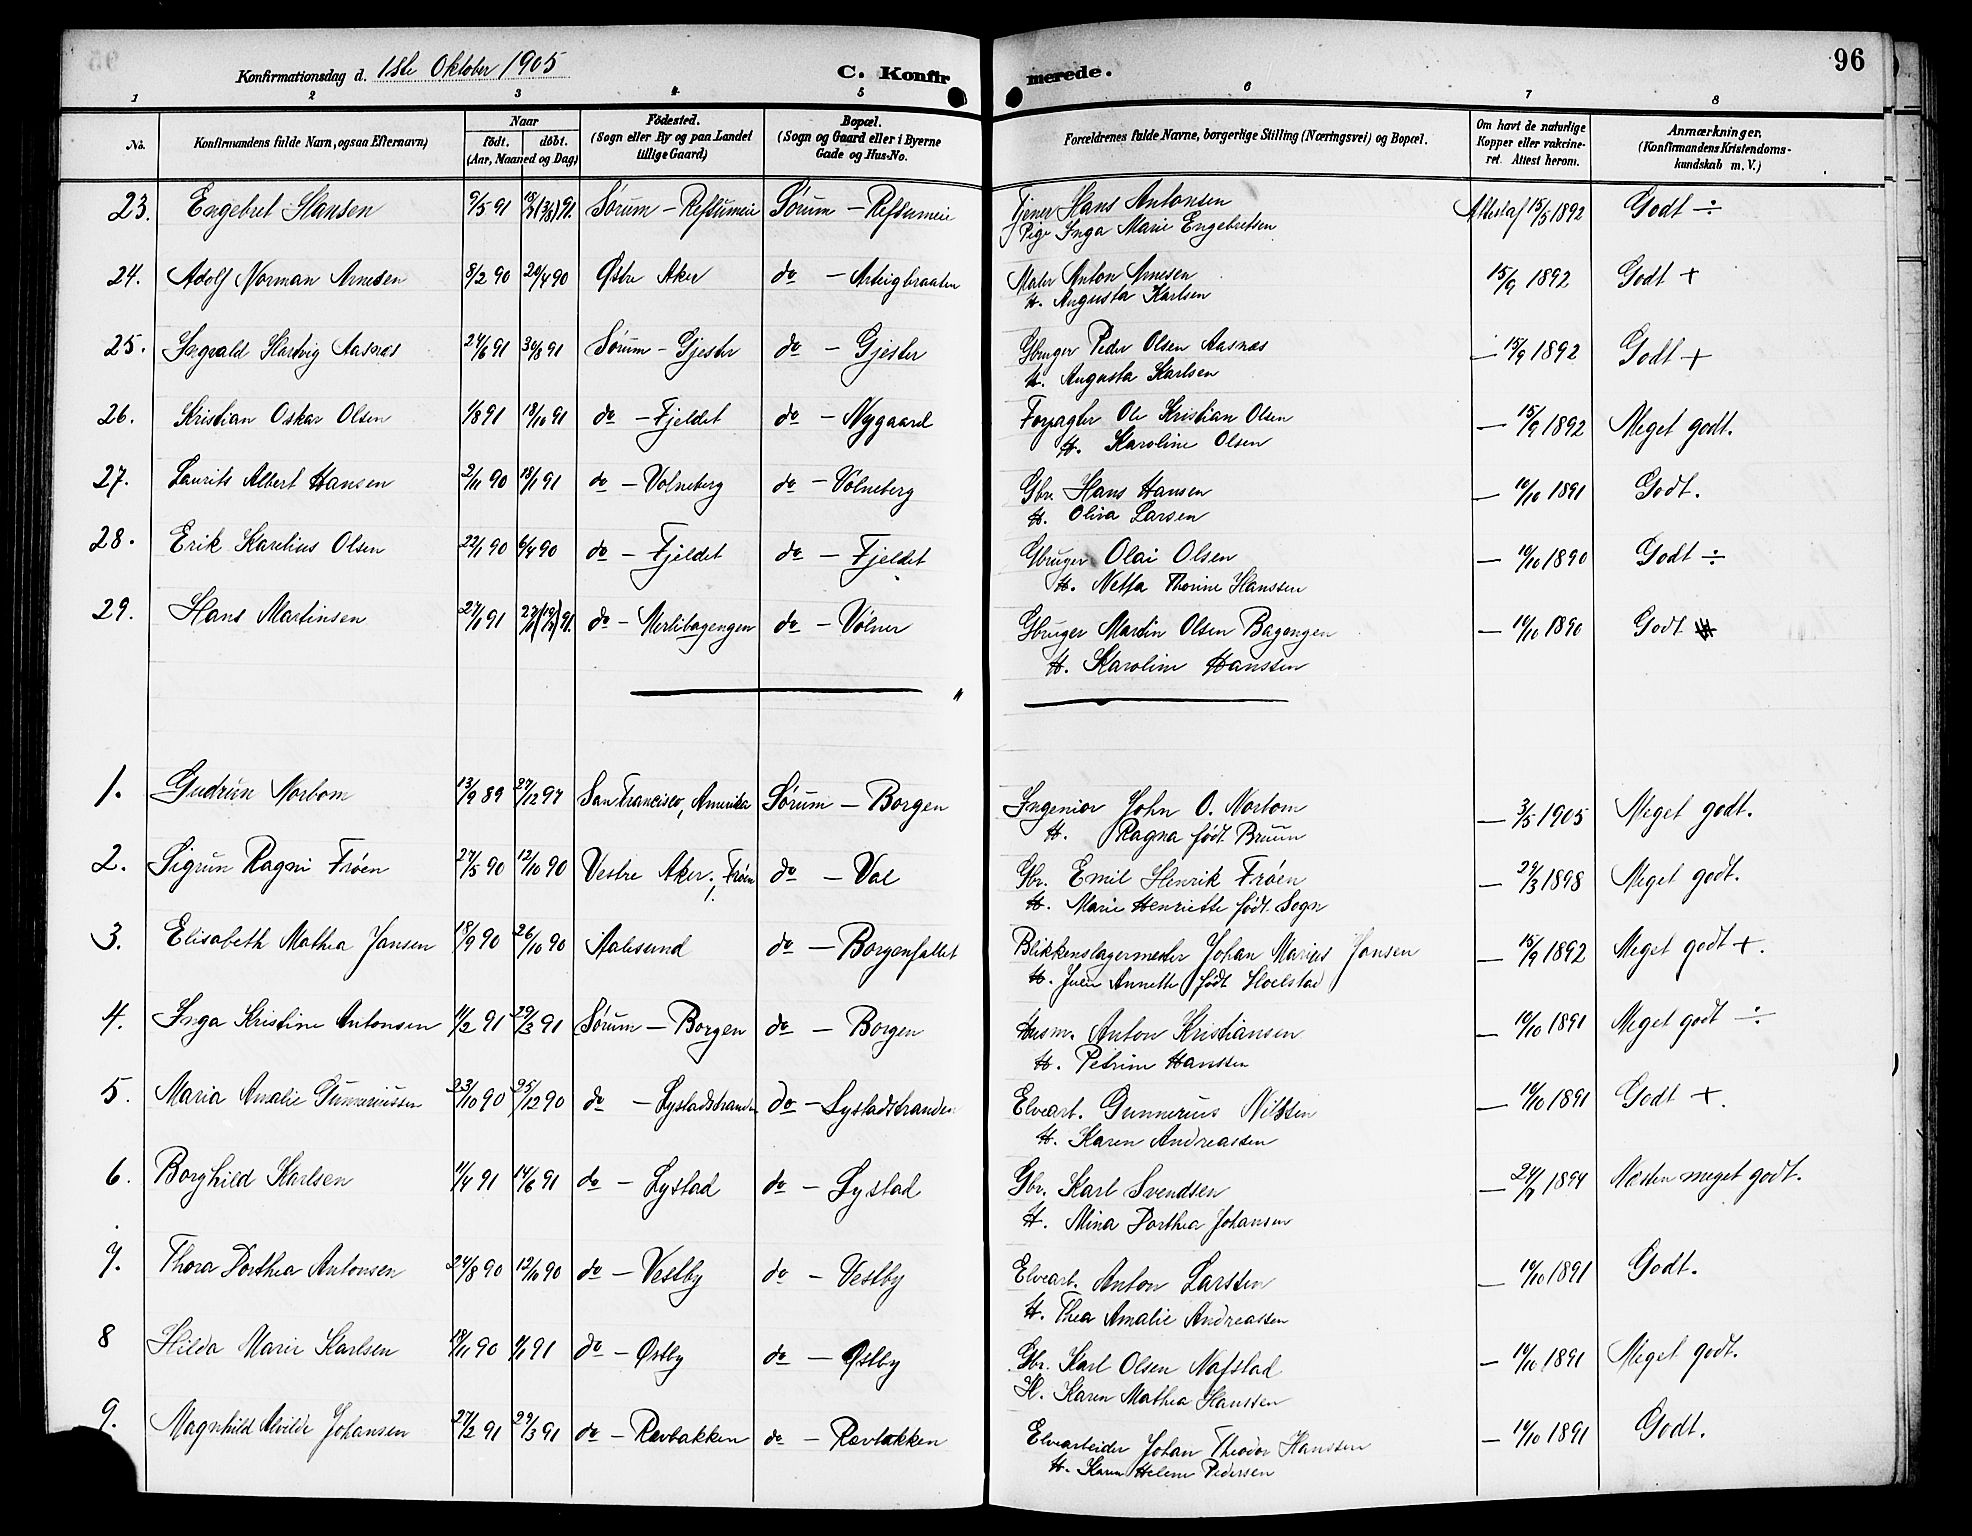 Konfirmationsdag d. 1ste Oktober 1905 C. Konfirmerede. 96
1 2 3 4 5 6 7 8
No. Konfirmandens fulde Navn, ogsaa Efternavn) Naar født. døbt. (Aar, Maaned og Dag) Fødested. (Sogn eller By og paa Landet tillige Gaard) Bopæl. (Sogn og Gaard eller i Byerne Gade og Hus-No. Forældrenes fulde Navne, borgerlige Stilling (Næringsvei) og Bopæl. Om havt de naturlige Kopper eller vakcineret. Attest herom. Anmærkninger. (Konfirmandens Kristendomskundskab m. V.)
23. Engebret Hansen 9/5 91 91. Sørum - Refsumeie Sørum - Refsumeie Tjener Hans Antonsen Attestaf 15/5 1892 Godt ÷
Pige Inga Marie Engebretsen
24. Adolf Norman Arnesen 8/2 90 20/4 90 Østre Aker do - Maler Anton Arnesen 15/9 1892 Godt +
H. Augusta Karlsen
25. Ingvald Hartvig Aasnæs 24/6 91 30/8 91 Sørum - Gjester do - Gjester Gbruger Peder Olsen Aasnæs - 15/9 1892 Godt +
H. Augusta Karlsen
26. Kristian Oskar Olsen 1/8 91 18/10 91 do - Fjeldet do - Nygaard Forpagter Ole Kristian Olsen - 15/9 1892 Meget godt.
H. Karoline Olsen
27. Laurits Albert Hansen 2/11 90 18/1 91 do - Volneberg do - Volneberg Gbr. Hans Hansen - 10/10 1891 Godt.
H. Oliva Larsen
28. Erik Karelius Olsen 22/1 90 6/4 90 do - Fjeldet do - Fjeldet Gbruger Olai Olsen - 10/10 1890 Godt ÷
H. Netta Thorine Hanssen
29. Hans Martinsen 27/1 91 91. do - Merlibagengen do - Vølner Gbruger Martin Olsen Bagengen - 10/10 1890 Godt
H. Karoline Hanssen
1. Gudrun Norbom 13/9 89 27/12 97 San Francisco, Amerika Sørum - Borgen Ingeniør John O. Norbom - 3/5 1905 Meget godt.
H. Ragna født Bruun
2. Sigrun Ragni Frøen 27/5 90 12/10 90 Vestre Aker, Frøen do - Vol Gbr. Emil Henrik Frøen - 29/3 1898 Meget godt.
H. Marie Henriette født Sogn
3. Elisabeth Mathea Jansen 18/9 90 26/10 90 Aalesund do - Borgenfallet Blikkenslagermester Johan Marius Jansen - 15/9 1892 Meget godt +.
H. Annette født Hoelstad
4. Inga Kristine Antonsen 11/2 91 29/3 91 Sørum - Borgen do - Borgen Husm. Anton Kristiansen - 10/10 1891 Meget godt ÷
H. Petrine Hanssen
5. Maria Amalie Gunneriussen 23/10 90 25/12 90 do - Lystadstranden do - Lystadstranden Elvearb. Gunnerius Nilssen - 10/10 1891 Godt +.
H. Karen Andreassen
6. Borghild Karlsen 11/4 91 14/6 91 do - Lystad do - Lystad Gbr. Karl Svendsen 1894 Næsten meget godt.
H. Mina Dorthea Johansen
7. Thora Dorthea Antonsen 24/8 90 12/10 90 do - Vestby do - Vestby Elvearb. Anton Larssen - 10/10 1891 Godt.
H. Thea Amalie Andreassen
8 Hilda Marie Karlsen 18/11 90 1/1 91 do - Østby do - Østby Gbr. Karl Olsen Nafstad - 10/10 1891 Meget godt.
H. Karen Mathea Hanssen
9. Magnhild Alvilde Johansen 27/2 91 29/3 91 do - Rævbakken do - Rævbakken Elvearbeider Johan Theodor Hanssen - 10/10 1891 Godt.
H. Karen Helene Pedersen